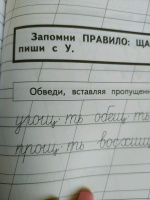 Запомни ПРАВИЛО: ЩА
пиши с У.
Обведи, вставляя пропущенн
урощ ть обещ ть
прощ ть восхищ